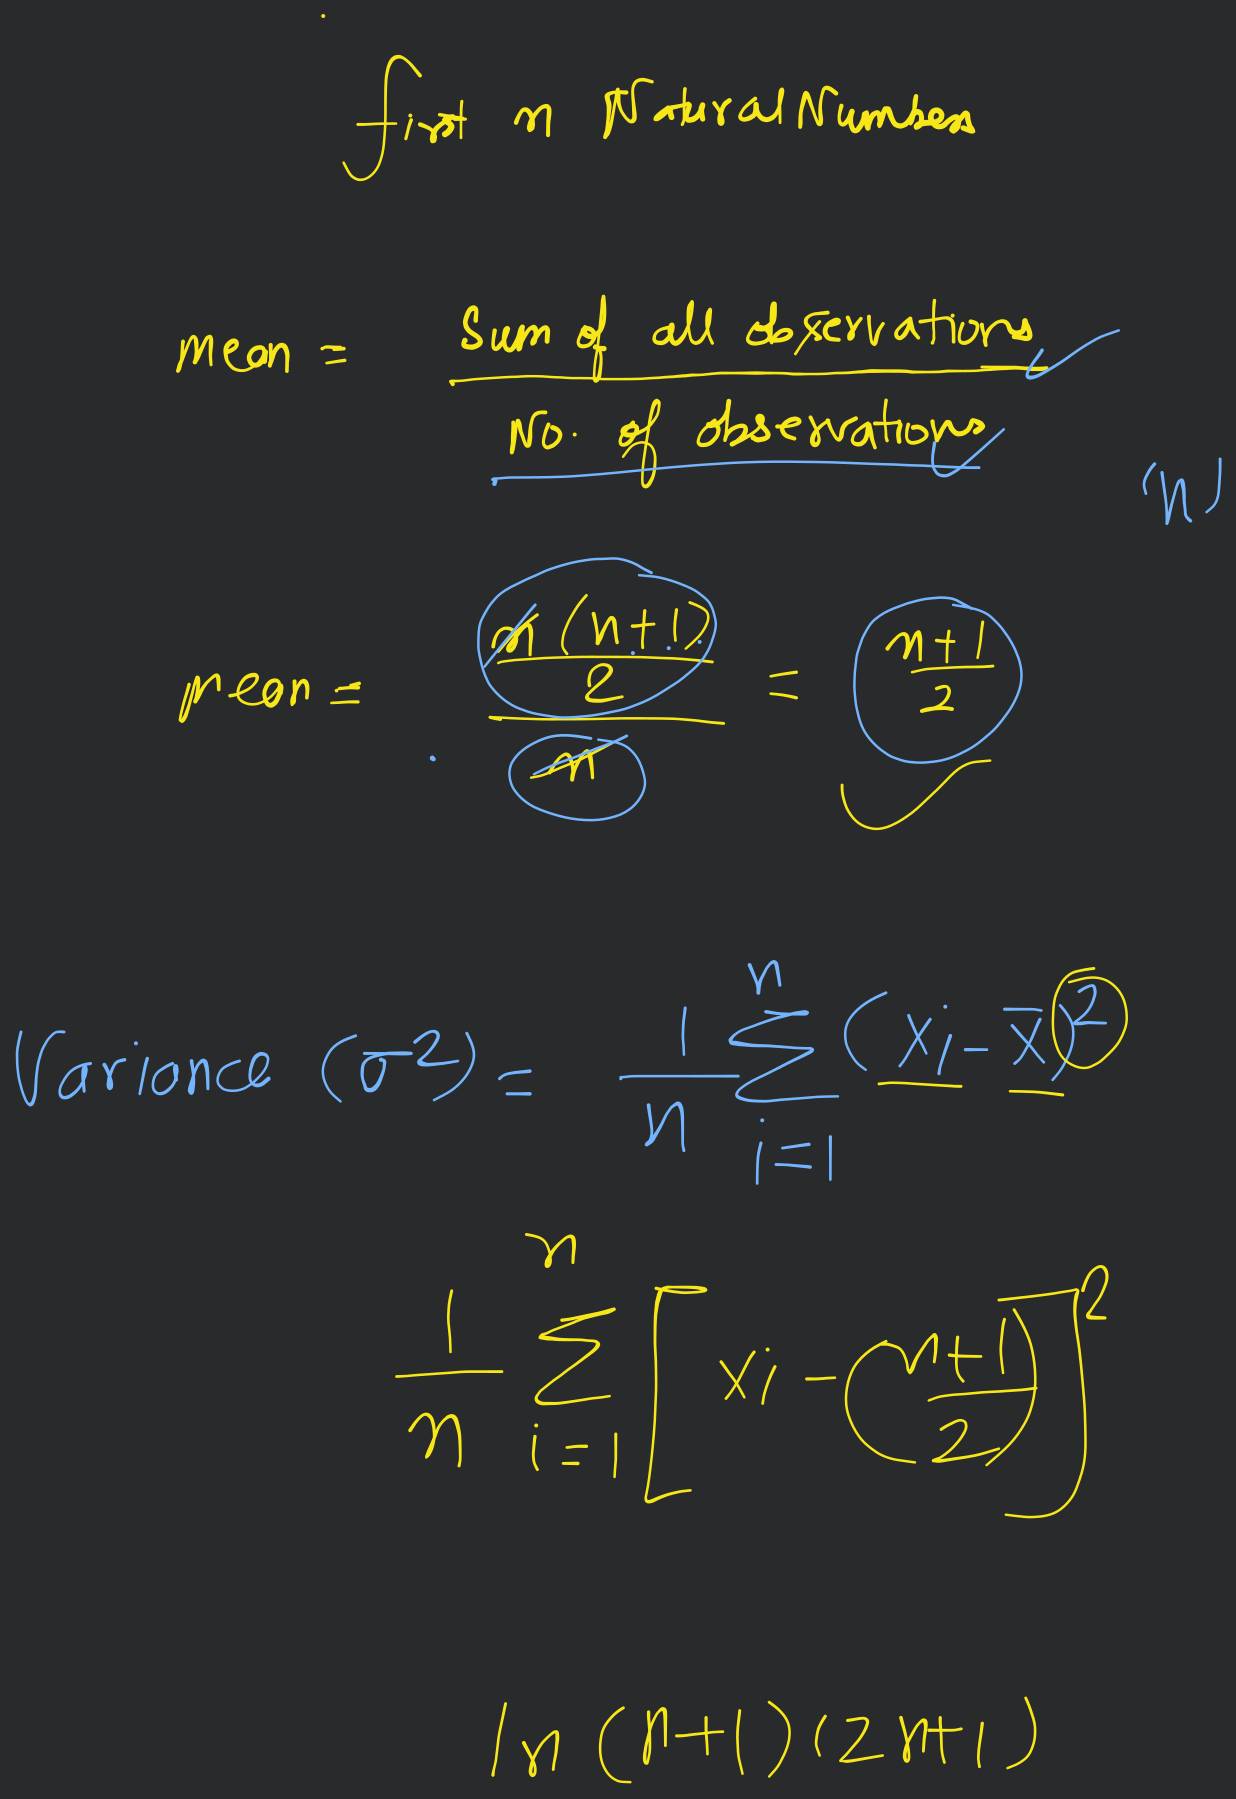 first n Natural Numbers
mean = Sum of all observations / No. of observations
(n)
mean = (n(n+1)/2) / n = (n+1)/2
Variance (σ²) = 1/n ∑ⁿᵢ₌₁ (xi - x̄)²
1/n ∑ⁿᵢ₌₁ [xi - (n+1/2)]²
n (n+1) (2n+1)